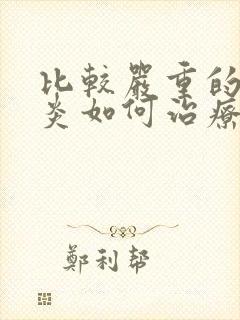 比較嚴重的
炎如何治療
鄭利幫